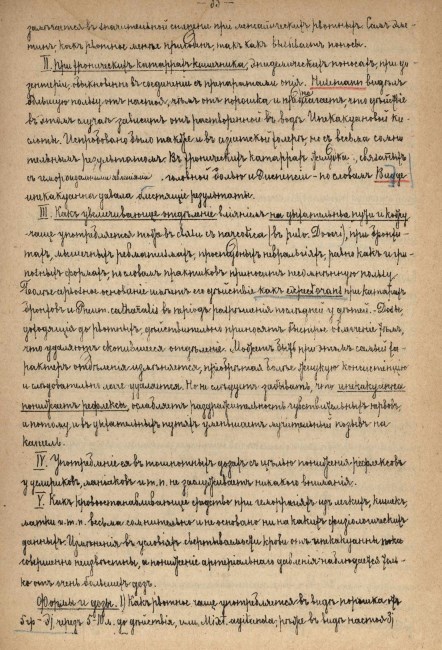 замѣчается въ значительной степени при меньшихъ рвотныхъ. Самъ эме-
тинъ какъ рвотное менѣе пригоденъ, такъ какъ вызываетъ поносы.
II. При хроническихъ катаррахъ кишечника, эпидемическихъ поносахъ, при ди-
зентеріи, обыкновенно въ соединеніи съ препаратами опія.
большую пользу отъ настоя, чѣмъ отъ порошка и что дѣйствіе
въ этомъ случаѣ зависитъ отъ растворенной въ водѣ Ипекакуановой ки-
слоты. Испробовано было также и въ азіатской холерѣ, но съ весьма сомни-
тельнымъ результатомъ. Въ хроническихъ катаррахъ желудка, связанныхъ
съ головной болью и Диспепсіей - по словамъ
ипекакуанна давала блестящіе результаты.
III. Какъ увеличивающее отдѣленіе вліяніемъ на дыхательные пути и кожу
чаще употребляется тогда въ связи съ narcotica (въ pulv. Doveri), при бронхи-
тахъ, мышечныхъ ревматизмахъ, простудныхъ невралгіяхъ, равно какъ и
формахъ, по словамъ практиковъ приноситъ несомнѣнную пользу.
Болѣе серьезное основаніе имѣетъ его дѣйствіе какъ expectorans при катаррѣ
бронховъ и Pneum. catarrhalis въ періодѣ разрѣшенія послѣдней у дѣтей. Дозы,
доходящія до рвотныхъ, дѣйствительно приносятъ облегченіе тѣмъ,
что удаляютъ скопившееся отдѣленіе. Можетъ быть при этомъ самый ха-
рактеръ отдѣленія измѣняется, пріобрѣтая болѣе жидкую консистенцію
и слѣдовательно легче удаляется. Но не слѣдуетъ забывать, что ипекакуанна
понижаетъ рефлексы, ославляетъ раздражительность чувствительныхъ нервовъ,
а потому и въ дыхательныхъ путяхъ уменьшаетъ мучительный позывъ на
кашель.
IV. Употребленіе ея въ тошнотныхъ дозахъ съ цѣлью пониженія рефлексовъ
у истериковъ, маніаковъ и.т.п. не заслуживаетъ никакого вниманія.
V. Какъ кровоостанавливающее средство при геморрагіяхъ изъ легкихъ, кишекъ,
матки и.т.п. весьма сомнительно и не основано ни на какихъ физіологическихъ
данныхъ. Измѣненія въ условіяхъ свертываемости крови отъ ипекакуанны пока
совершенно неизвѣстны, а пониженіе артеріальнаго давленія наблюдается толь-
ко отъ очень большихъ дозъ.
Формы и дозы. 1) Какъ рвотное чаще употребляется въ видѣ порошка
5 гр - черезъ 5-10 м. до дѣйствія, или Mixt. agitanda; рѣже въ видѣ настоя